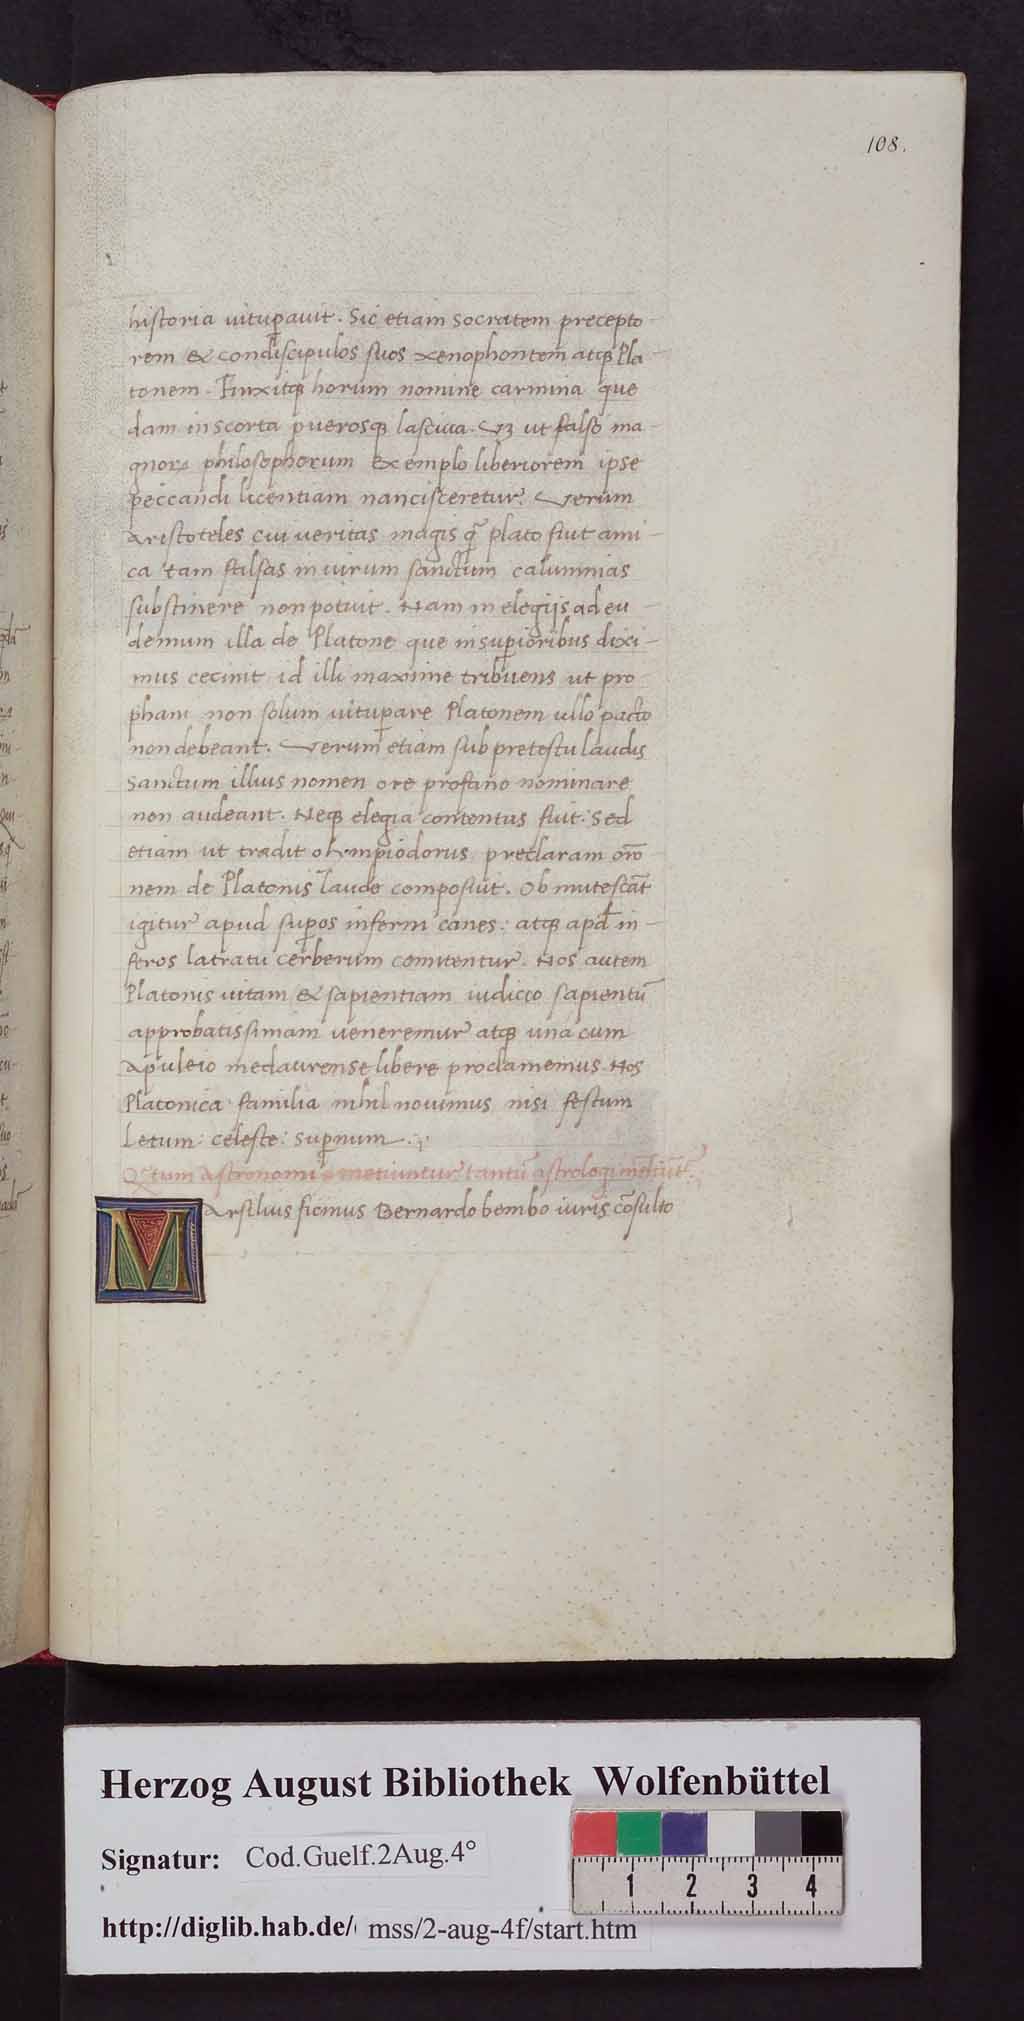 108.
historia uitup̱auit. Sic etiam socratem precepto-
rem & condiscipulos suos xenophontem atq̨ Pla-
tonem. Finxitq̨ horum nomine carmina que
dam in scorta puerosq̨ lasciua. Vꝫ ut falso ma-
gnorꝝ philosophorum exemplo liberiorem ipse
peccandi licentiam nancisceretur. Verum
Aristoteles cui ueritas magis q̃ plato fiut ami-
ca tam falsas in uirum sanctum calumnias
substinere non potuit. Nam in elegijs ad eu-
demum illa de Platone que in sup̱ioribus dixi-
mus cecinit id illi maxime tribuens ut pro
phani non solum uitup̱are Platonem ullo pacto
non debeant. Verum etiam sub pretestu laudis
sanctum illius nomen ore profano nominare
non audeant. Neq̨ elegia contentus fuit: Sed
etiam ut tradit olympiodorus preclaram orõ-
nem de Platonis laude composiut. Obmutescãt
igitur apud sup̱os inferni canes: atq̨ apd̃ in-
feros latratu cerberum comitentur. Nos autem
Platonis uitam & sapientiam iudicio sapientũ
approbatissimam ueneremur atq̨ una cum
Apuleio medaurense libere proclamemus. Nos
Platonica familia nihil nouimus nisi festum
Letum: celeste: sup̱num.
astronomi metiuntur tantũ astrologi mẽtiũt.
Marsilius ficinus Bernardo bembo iuris cõsulto
Herzog August Bibliothek Wolfenbüttel
Signatur: Cod.Guelf.2Aug.4°
1 2 3 4
http://diglib.hab.de/ mss/2-aug-4f/start.htm